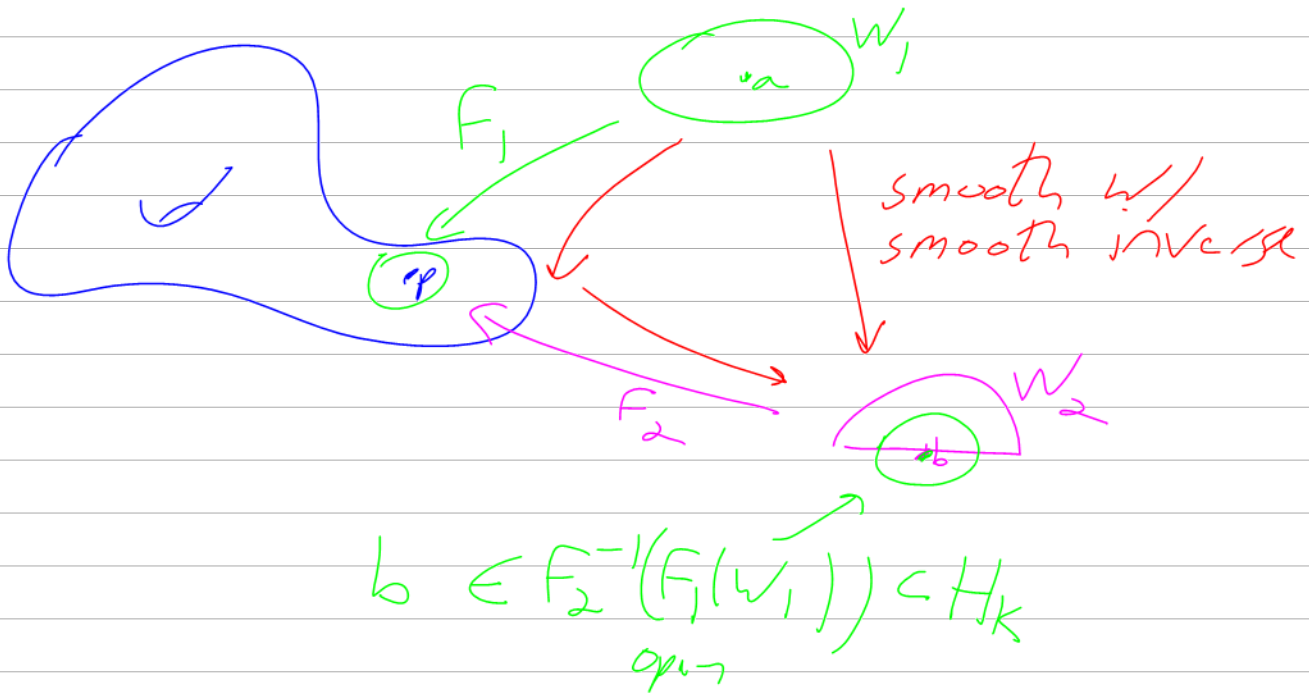 W₁
·a
F₁
smooth w/
smooth inverse
·p
F₂
W₂
·b
b ∈ F₂⁻¹(F₁(W₁)) ⊂ H_K
open